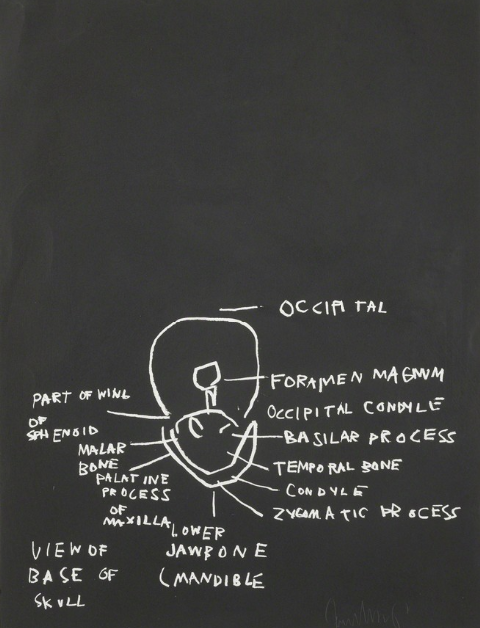 OCCIPITAL
FORAMEN MAGNUM
PART OF WING
OF
SPHENOID
OCCIPITAL CONDYLE
BASILAR PROCESS
MALAR
BONE
TEMPORAL BONE
PALATINE
PROCESS
OF
MAXILLA
CONDYLE
ZYGOMATIC PROCESS
LOWER
JAWBONE
(MANDIBLE
VIEW OF
BASE OF
SKULL